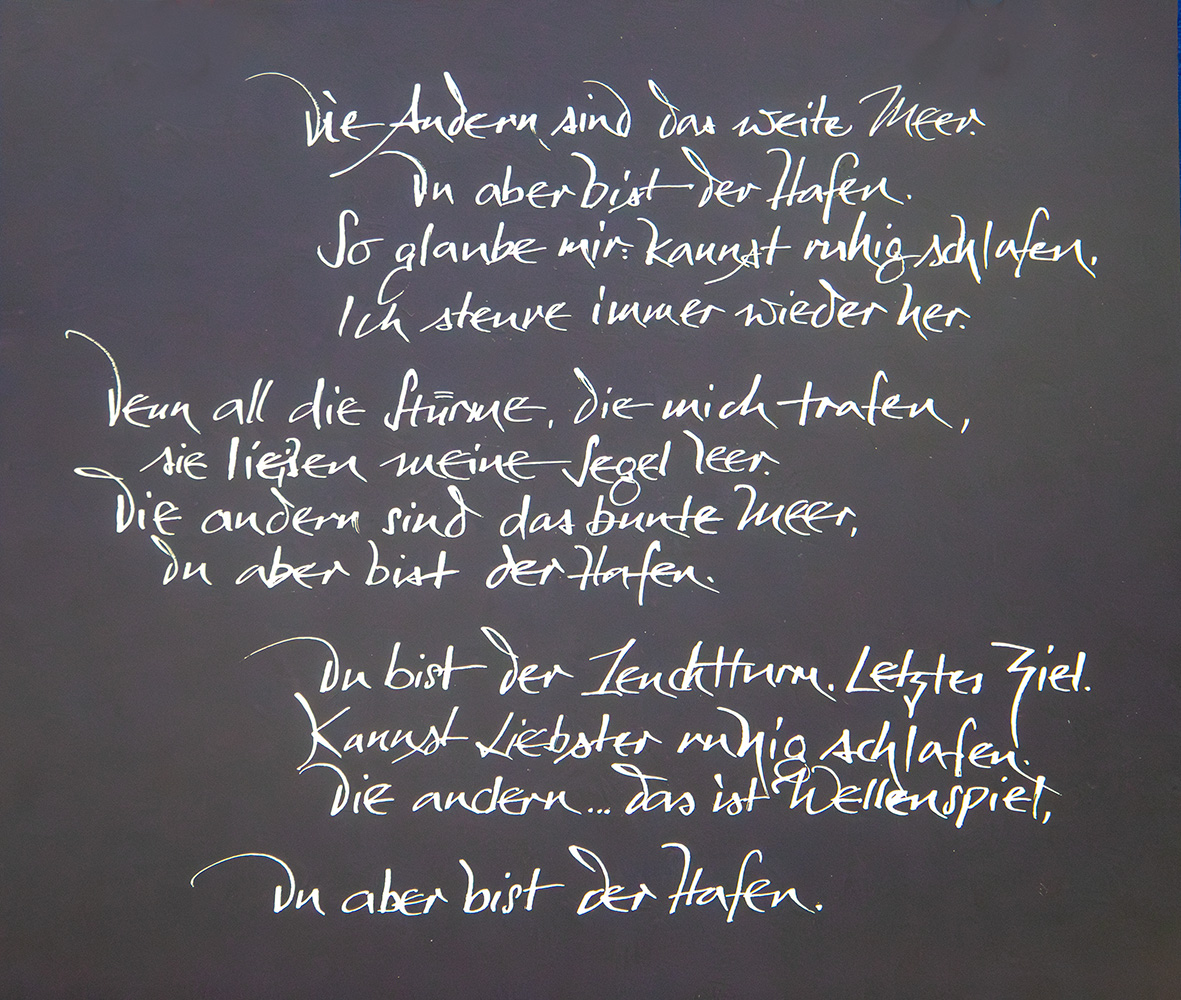 Die Andern sind das weite Meer.
Du aber bist der Hafen.
So glaube mir: kannst ruhig schlafen,
Ich steure immer wieder her.
Denn all die Stürme, die mich trafen,
sie ließen meine Segel leer.
Die andern sind das bunte Meer,
Du aber bist der Hafen.
Du bist der Leuchtturm. Letztes Ziel.
Kannst Liebster ruhig schlafen.
Die andern... das ist Wellenspiel,
Du aber bist der Hafen.